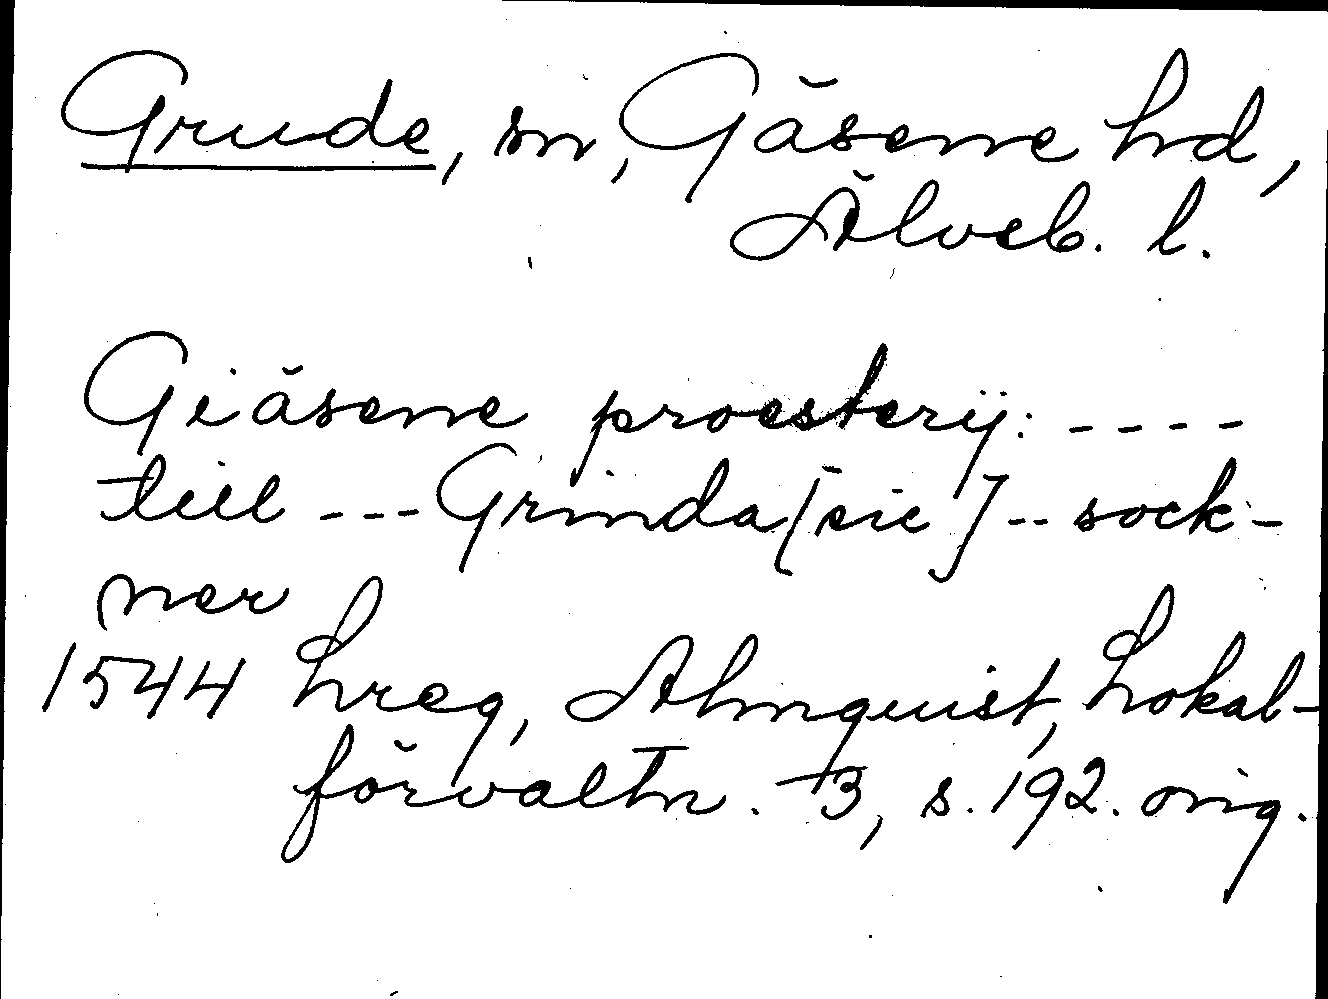 Grude, sn, Gäsene hd,
Älvsb. l.
Giäsene proesterij: ----
tiill --- Grinda [sic] -- sock-
ner
1544 hreg, Almquist, Lokal-
förvaltn. 3, s. 192. orig.